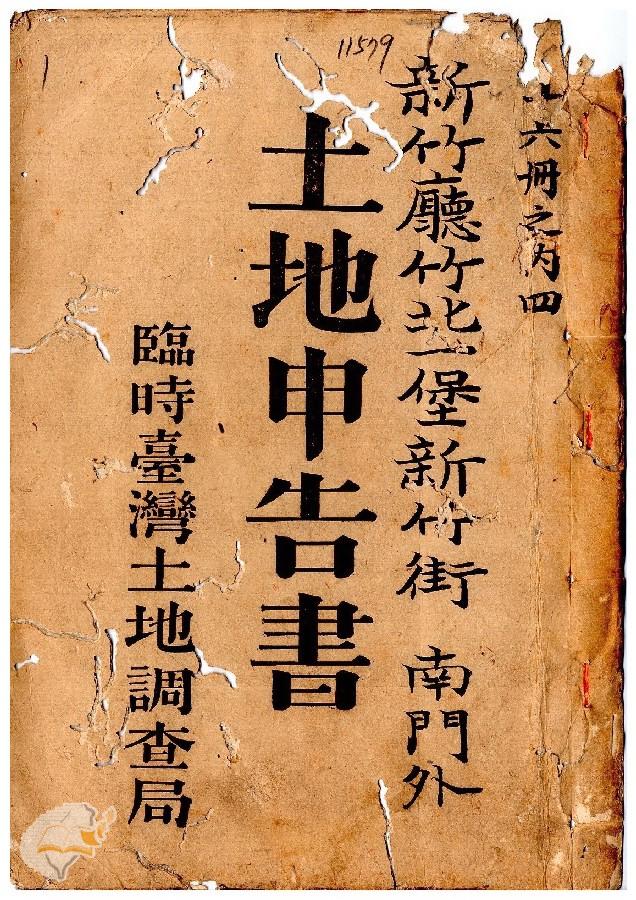 六冊之内四
新竹廳竹北一堡新竹街 南門外
11579
土地申告書
臨時臺灣土地調查局